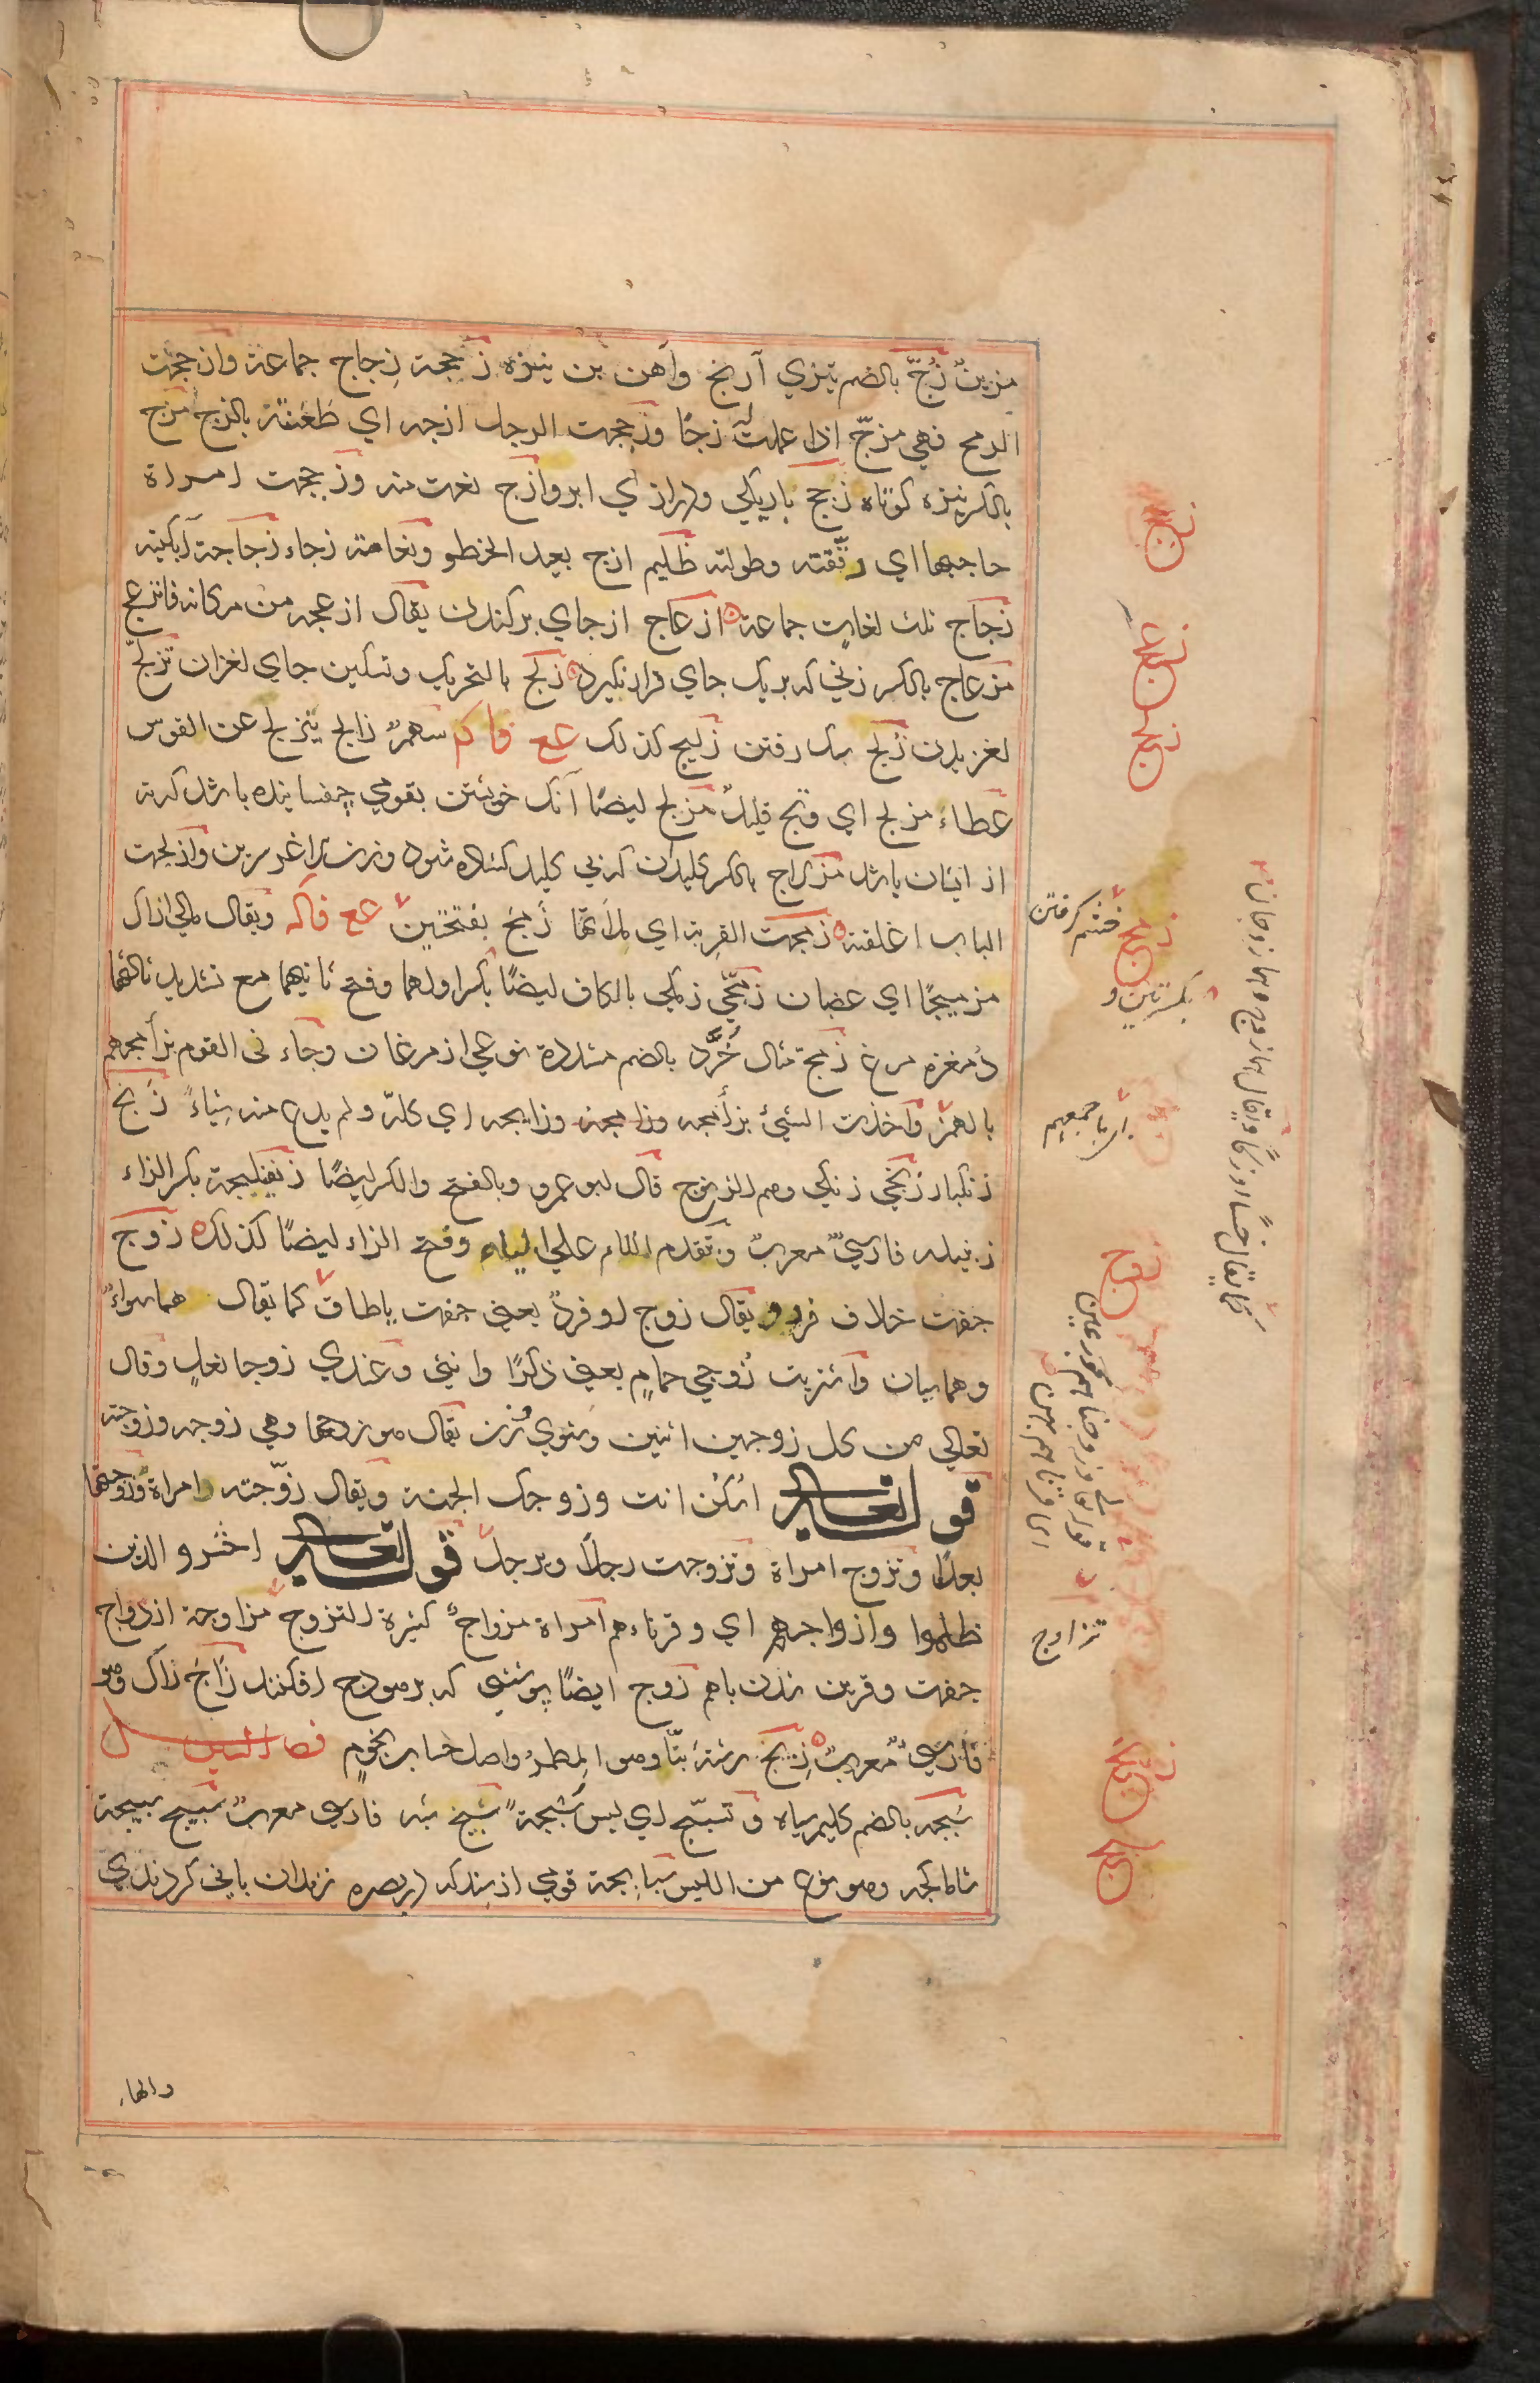 مزین زُجّ بالضم تیزي آرنج وآهن بن نیزه زججة زِجاج جماعة وازججت
الرمح فهي مزجّ اذا عملت له زجًا وزججت الرجل ازجه اي طعنته بالزج مزج
بالكسر نیزه كوتاه زجج باریكي ودرازي ابرو ازج نعت منه وزججت امراة
حاجبها اي رققته وطولته ظلیم ازج بعید الخطو ونعامته زجاء زجاجة آبكینه
زجاج ثلث لغات جماعة ازعاج از جاي بركندن یقال ازعجه من مكانه فانزعج
مزعاج بالكسر زني كه بریك جاي قرار نگیرد زلج بالتحریك وتسكین جاي لغزان تزلّج
لغزیدن زلج سبك رفتن زلیج كذلك عع فا كم سهمٌ زالج یتزلج عن القوس
عطاء مزلج اي وتح قلیل مزلج ایضًا آنكه خویشتن بقومي چفسانیده باشد كه نه
از ایشان باشد مزلاج بالكسر كلیدان كه بي كلید كشاده شود وزن لاغر سرین وازلجت
الباب اغلقته زمجت القربة اي ملأتها زمج بفتحتین عع فاكه ویقال مالي اراك
مزمیجًا اي غضبان زمجّي زمكي بالكاف ایضًا بكسر اولهما وفتح ثانیهما مع تشدید ثالثهما
دمغزه مرغ زمجة مثال خُرَّد بالضم مشددة نوعي از مرغان وجاء ني القوم بزأمجهم
بالهمز واخذت الشيئ بزأمجه وزامجه وزابجه اي كلّه ولم یدع منه شیاءً زنج
زنكبار زنجي زنكي وهم الزنوج قال ابو عمرو وبالفتح والكسر ایضًا زنفیلجة بكسر الزاء
زنبیله فارسيٌ معربٌ وتقدم اللام علي الیاء وفتح الزاء ایضًا كذلك زوج
جفت خلاف فرد و یقال زوج او فردٌ یعني جفت یا طاق كما یقال هما سواءٌ
وهما سیان واشتریت زوجي حمامٍ یعني ذكرًا وانثي وعندي زوجا نعلٍ وقال
تعالي من كل زوجین اثنین وشوي وزن یقال هو زوجها وهي زوجه وزوجته
قوله تعالي اسكن انت وزوجك الجنة ویقال زوّجته امراة وزوجتها
بعلًا وتزوج امراة وتزوجت رجلًا وبرجل قوله تعالي احشرو الذین
ظلموا وازواجهم اي وقرناءهم امراة مزواجٌ كثیرة التزوج مزاوجة ازدواج
جفت وقرین شدن باهم زوج ایضًا پوششي كه بر هودج افكنند زاج زاك وهو
فارسيٌ معربٌ زیج رشتهٔ بنّا وهو المطمر واصل حساب نجوم فصل السین
سبجه بالضم كلیم سیاه وتسبّج اي لبس سبجة سبج شبه فارسي معرب سبیج سبیجة
شاماكچه وهو نوع من اللبس سبابجة قومي از سند كه ببصره زندان باني كردندي
والهاء
زجج
زعج
زلج
زمج
خشم كرفتن
بكسرتین و
اي باجمعهم
زنج
زوج
قوله تعالي وزوجناهم بحور عین
اي قرناهم بهن
كما یقال خسا وزكا ویقال هما زوج وهما زوجان
تزاوج
زیج
سبج